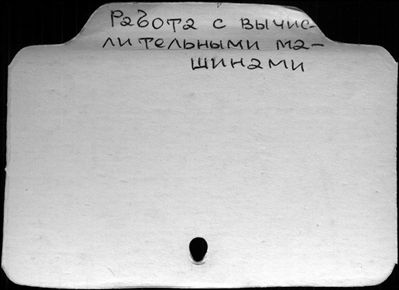 Работа с вычис-
лительными ма-
шинами